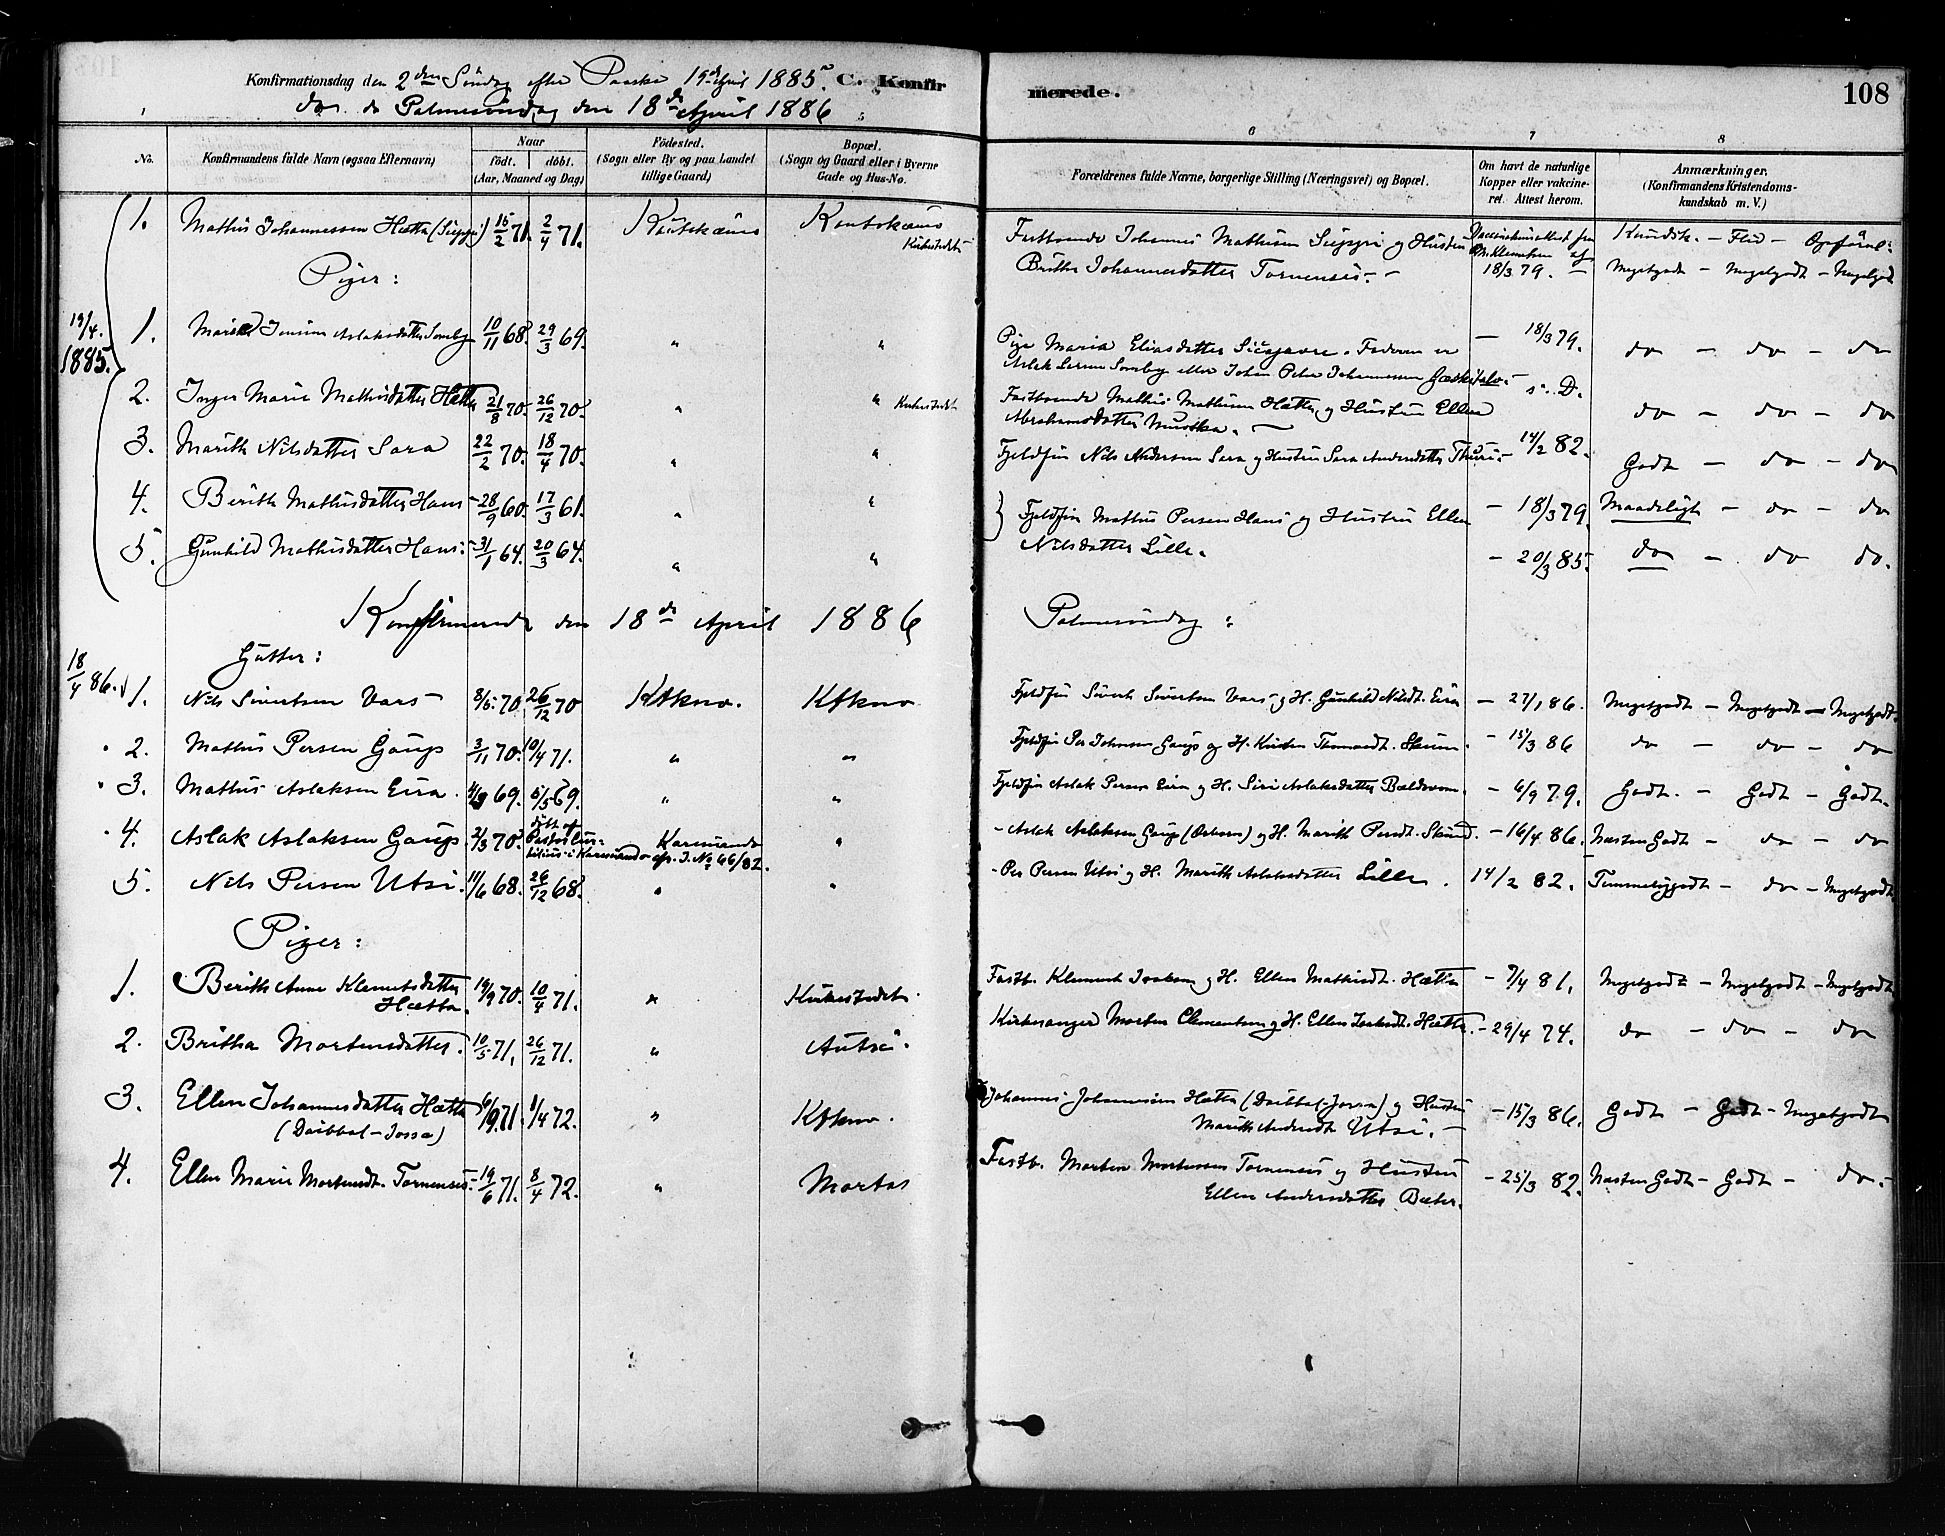 Konfirmationsdag den 2den Søndag efter Paaske 19de April 1885. C. Konfirmerede. 108
do. do Palmesøndag den 18de April 1886
1 5 6 7 8
No. Konfirmandens fulde Navn (ogsaa Efternavn) Naar født. døbt. (Aar, Maaned og Dag) Fødested. (Sogn eller By og paa Landet tillige Gaard) Bopæl. (Sogn og Gaard eller i Byerne Gade og Hus-No. Forældrenes fulde Navne, borgerlige Stilling (Næringsvei) og Bopæl. Om havt de naturlige Kopper eller vakcineret. Attest herom. Anmærkninger. (Konfirmandens Kristendomskundskab m. V.)
1. Mathis Johannessen Hætta (Siuppi) 15/2 71. 2/4 71. Koutokæino Koutokæino Kirkestedet Fastboende Johannes Mathisen Siuppi og Hustru Kundsk. – Flid – Opførsel:
Britha Johannesdatter Tornensis – 18/3 79. – Megetgodt – Megetgodt – Megetgodt
Piger:
19/4. 1885.
1. Marie Aslaksdatter Somby 10/11 68. 29/3 69. " " Pige Maria Eliasdatter Siesjavre. Faderen er – 18/3 79. do – do – do
Aslak Larsen Somby eller Johan Peter Johannessen
2. Inger Marie Mathisdatter Hætta 21/8 70. 26/12 70. " " Kirkestedet Fastboende Mathis Mathisen Hætta og Hustru Ellen s. D. do – do – do
Abrahamsdatter Muotka. –
3. Marith Nilsdatter Sara 22/2 70. 18/4 70. " " Fjeldfin Nils Andersen Sara og Hustru Sara Andersdatter Thuri – 14/2 82. Godt – do – do
4. Berith Mathisdatter Hans – 28/9 60. 17/3 61. " " Fjeldfin Mathis Persen Hans og Hustru Ellen – 18/3 79. Maadeligt – do – do
5. Gunhild Mathisdatter Hans – 31/1 64. 20/3 64. " " Nilsdatter Lille. – 20/3 85. do – do do.
Konfirmerede den 18de April 1886 Palmesøndag:
Gutter:
18/4 86.
1. Nils Sivertsen Vars – 8/5 70. 26/12 70 Ktkno. Ktkno Fjeldfin Sivert Sivertsen Vars og H. Gunhild Nilsdt. Eira – 27/1 86. Megetgodt – Megetgodt – Megetgodt
2. Mathis Persen Gaup 3/1 70. 10/4 71. " " Fjeldfin Per Johnsen Gaup og H. Kirsten Thomasdt. Skum. – 15/3 86 do – do – do
3. Mathis Aslaksen Eira. 69. 5/5 69. " " Fjeldfin Aslak Persen Eira og H. Siri Aslaksdatter Bældovom. – 6/9 79. Godt. – Godt – Godt.
4. Aslak Aslaksen Gaup. 2/3 70. døbt af Pastor i Karesuando efr. J. No 46/82. Karesuando " – Aslak Aslaksen Gaup og H. Marith Persdt. Skum. – 16/4 86. Næsten Godt – do – do
5. Nils Persen Utsi. 11/6 68. 26/12 68. " " – Per Persen Utsi og H. Marith Aslaksdatter Lille. 14/2 82. Temmeliggodt – do – Megetgodt
Piger:
1. Berith Anne Klemetsdatter Hætta. 19/9 70. 10/4 71. " Kirkestedet. Fastb. Klemet Isaksen og H. Ellen Mathisdt. Hætta – 7/4 81. Megetgodt – Megetgodt – Megetgodt
2. Britha Mortensdatter. 10/5 71. 26/12 71. " Autsi. Kirkesanger Morten Clementsen og H. Ellen Isaksdt. Hætta. – 29/4 74. do – do – do
3. Ellen Johannesdatter Hætta 6/9 71. 1/4 72. " Ktkno. Johannes Johannesen Hætta (Daibbal-Jossa) og Hustru – 15/3 86. Godt – Godt – Megetgodt
(Daibbal-Jossa) Marith Andersdt Utsi. –
4. Ellen Marie Mortensdt. Tornensis – 19/6 71. 8/4 72. " Mortas Fastb. Morten Mortensen Tornensis og Hustru – 25/3 82. Næsten Godt – Godt – do. –
Ellen Andersdatter Bæter.